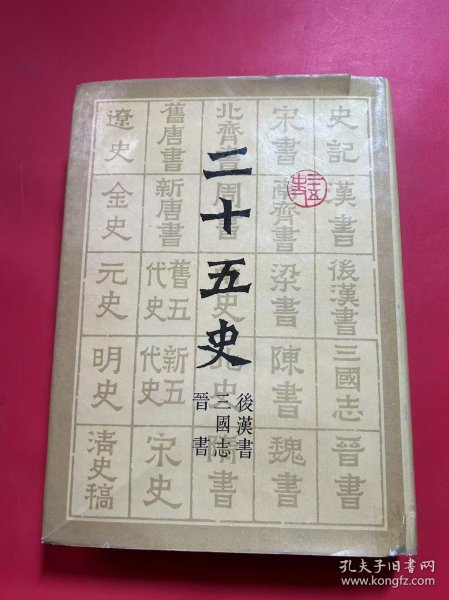 二十五史
後漢書
三國志
晉書
史記
漢書
後漢書
三國志
晉書
宋書
南齊書
梁書
陳書
魏書
北齊書
周書
史
北史
隋書
舊唐書
新唐書
舊五代史
新五代史
宋史
遼史
金史
元史
明史
清史稿
孔夫子旧书网
www.kongfz.com